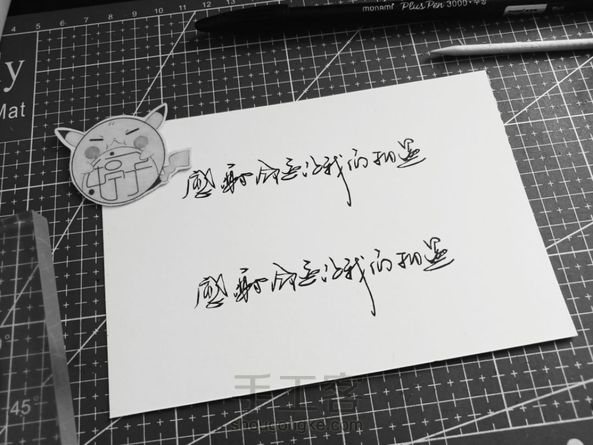 monami Plus Pen 3000
y
Mat
感谢命运让我们相遇
感谢命运让我们相遇
45°
手工客
shougongke.com